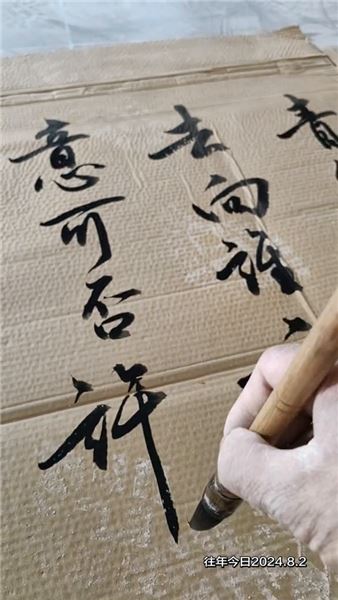 青
去向谁
意可否许
往年今日2024.8.2